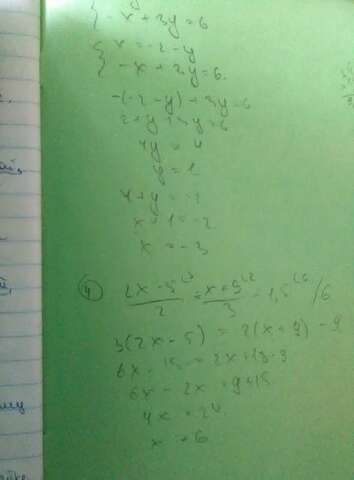 -x + 3y = 6
x = -2 - y
-x + 3y = 6.
-(-2 - y) + 3y = 6
2 + y + 3y = 6
4y = 4
y = 1
x + y = -2
x + 1 = -2
x = -3
4 2x - 5 / 2 = x + 9 / 3 - 1,5 /6
3(2x - 5) = 2(x + 9) - 9
6x - 15 = 2x + 18 - 9
6x - 2x = 9 + 15
4x = 24
x = 6